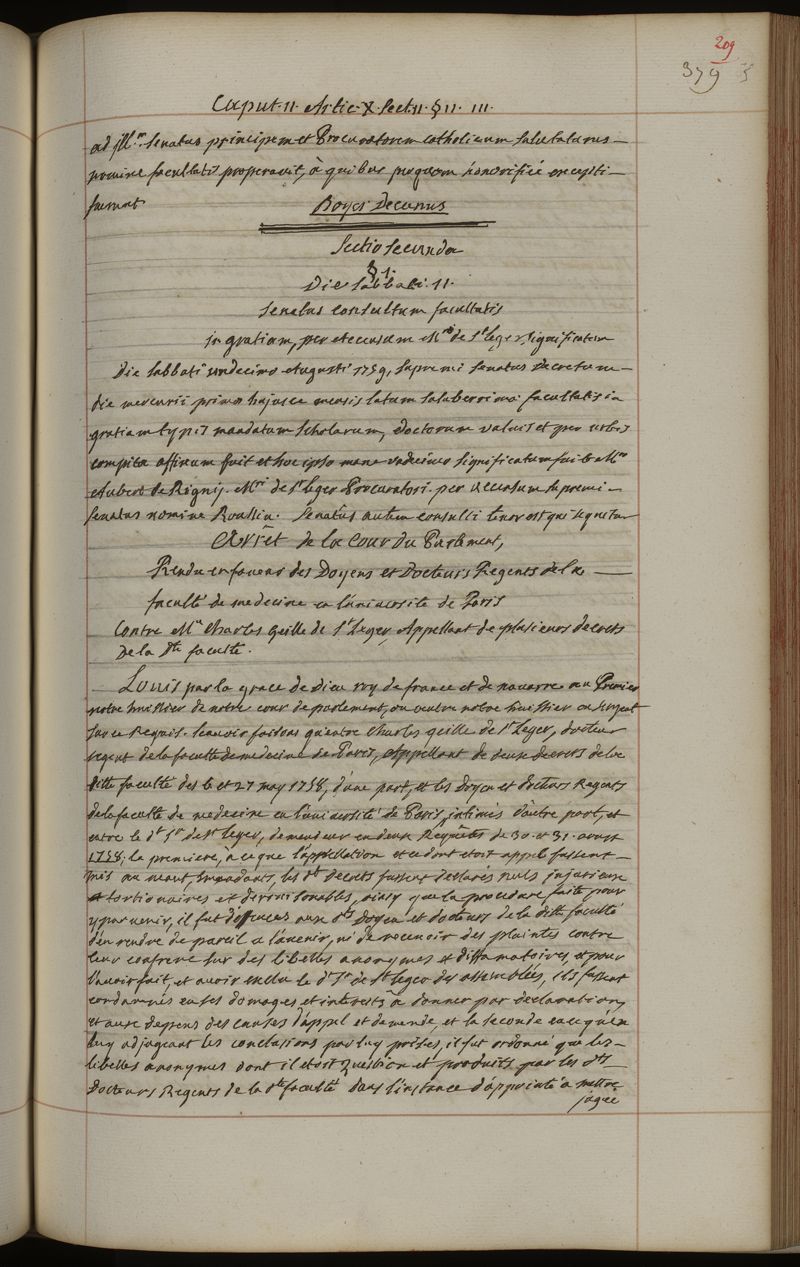 209
379
Caput. II. Artic. X. Sect. II. § II. III.
ad Ill.m Senatus principem et Procuratorem catholicum salutaturus
nomine facultatis properavit, à quibus perquam honorificè excepti
fuerunt. Boyer Decanus
Sectio Secunda
§ 1.
Die Sabbati. 11.
Senatus consultum facultatis
in gratiam, per accensum Mro de St Leger, significatum
Die Sabbati undecimo Augusti 1759, supremi Senatus Decretum
die mercurii primo hujusce mensis latum saluberrimae facultatis in
gratiam typis mandatum Scholarum, Doctorum valvis et per urbis
compita affixum fuit et hoc ipso mane undecimo significatum fuit Mro
Aubert de Rigny. Mri de St Leger Procuratori. per accensum supremi
Senatus nomine Roullin. Senatus autem consulti tenor est qui sequitur
Arrêt de la Cour du Parlement,
Rendu en faveur des Doyens et Docteurs Regents de la
faculté de medecine en l'université de Paris
Contre Me Charles Geille de St Leger, Appellant de plusieurs decrets
De la dte faculté.
Louis par la grace de Dieu roy de france et de navarre au Premier
notre huissier de notre cour de parlement, ou autre notre huissier ou sergent
sur ce Requis. Scavoir faisons qu'entre Charles geille de St Leger, docteur
regent de la faculté de medecine de Paris, Appellant de deux decrets de la
ditte faculté des 6 et 27 may 1758, d'une part, et les Doyen et docteurs Regents
de la faculté de medecine en l'université de Paris, intimés d'autre part, et
entre le dt Sr de St Leger, demandeur en deux Requêtes de 30 et 31 aoust
1758; la premiere, à ce que l'appellation et ce dont etoit appel fussent
mis au neant, emendants, les dts decrets fussent declarés nuls, injurieux
tortionaires et deraisonables, ainsy que la procedure faite pour
y parvenir, il fut deffences aux dts Doyen et docteurs de la ditte faculté
d'en rendre de pareil a l'avenir, ni de recevoir des plaintes contre
leur confrere sur des libelles anonymes et diffamatoires, et pour
l'avoir fait, et avoir exclu le dt Sr de St Leger des assemblées, ils fussent
condamnés en ses domages et interests à donner par declaration,
et aux depens des causes d'appel et demande, et la seconde en ce qu'en
luy adjugeant les conclusions par luy prises, il fut ordonné que les
libelles anonymes dont il etoit question et produits par les dts
Docteurs Regents de la dte faculté dans l'instance d'appointé a mettre
jugée